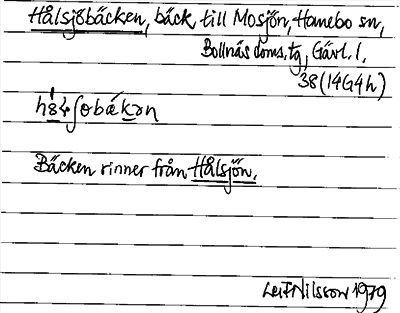 Hålsjöbäcken, bäck, till Mosjön, Hanebo sn,
Bollnäs doms.tg, Gävl. l,
38 (14G4h)
Bäcken rinner från Hålsjön.
Leif Nilsson 1979